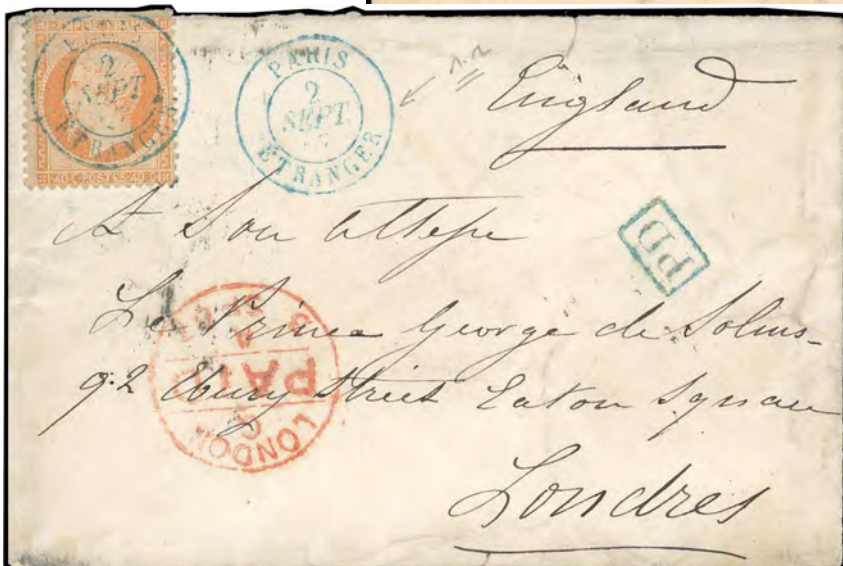 EMPIRE FRANC
40 C POSTES 40 C
2
SEPT
ETRANGER
PARIS
2
SEPT.
ETRANGER
England
PD
A Son Altesse
Le Prince George de Solms-
92 Ebury Street Eaton Square
Londres
LONDON
PAID